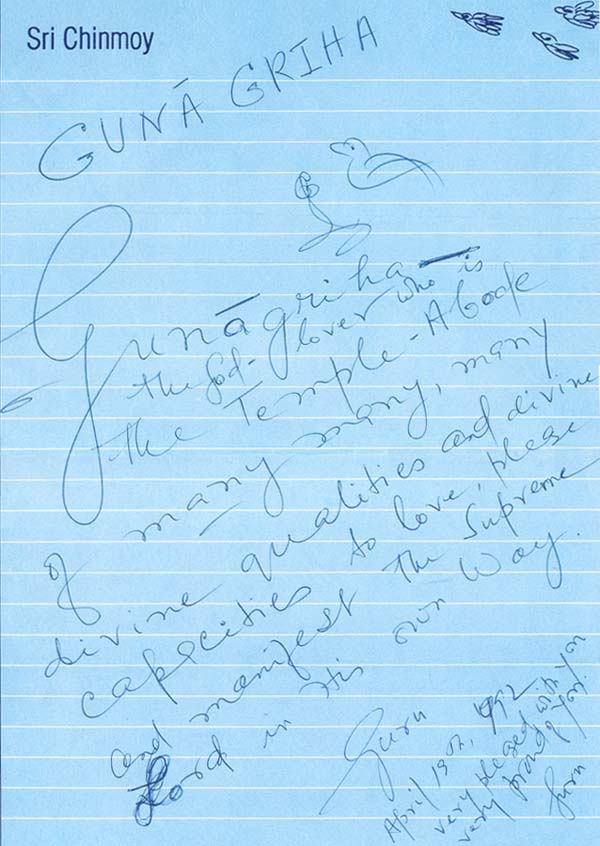 Sri Chinmoy
GUNĀ GRIHA
Gunāgriha —
the God-lover who is
the Temple-Abode
of many many, many
divine qualities and divine
capacities to love, please
and manifest the Supreme
Lord in His own Way.
Guru
April 1992
very pleased with you
very proud of you.
Guru